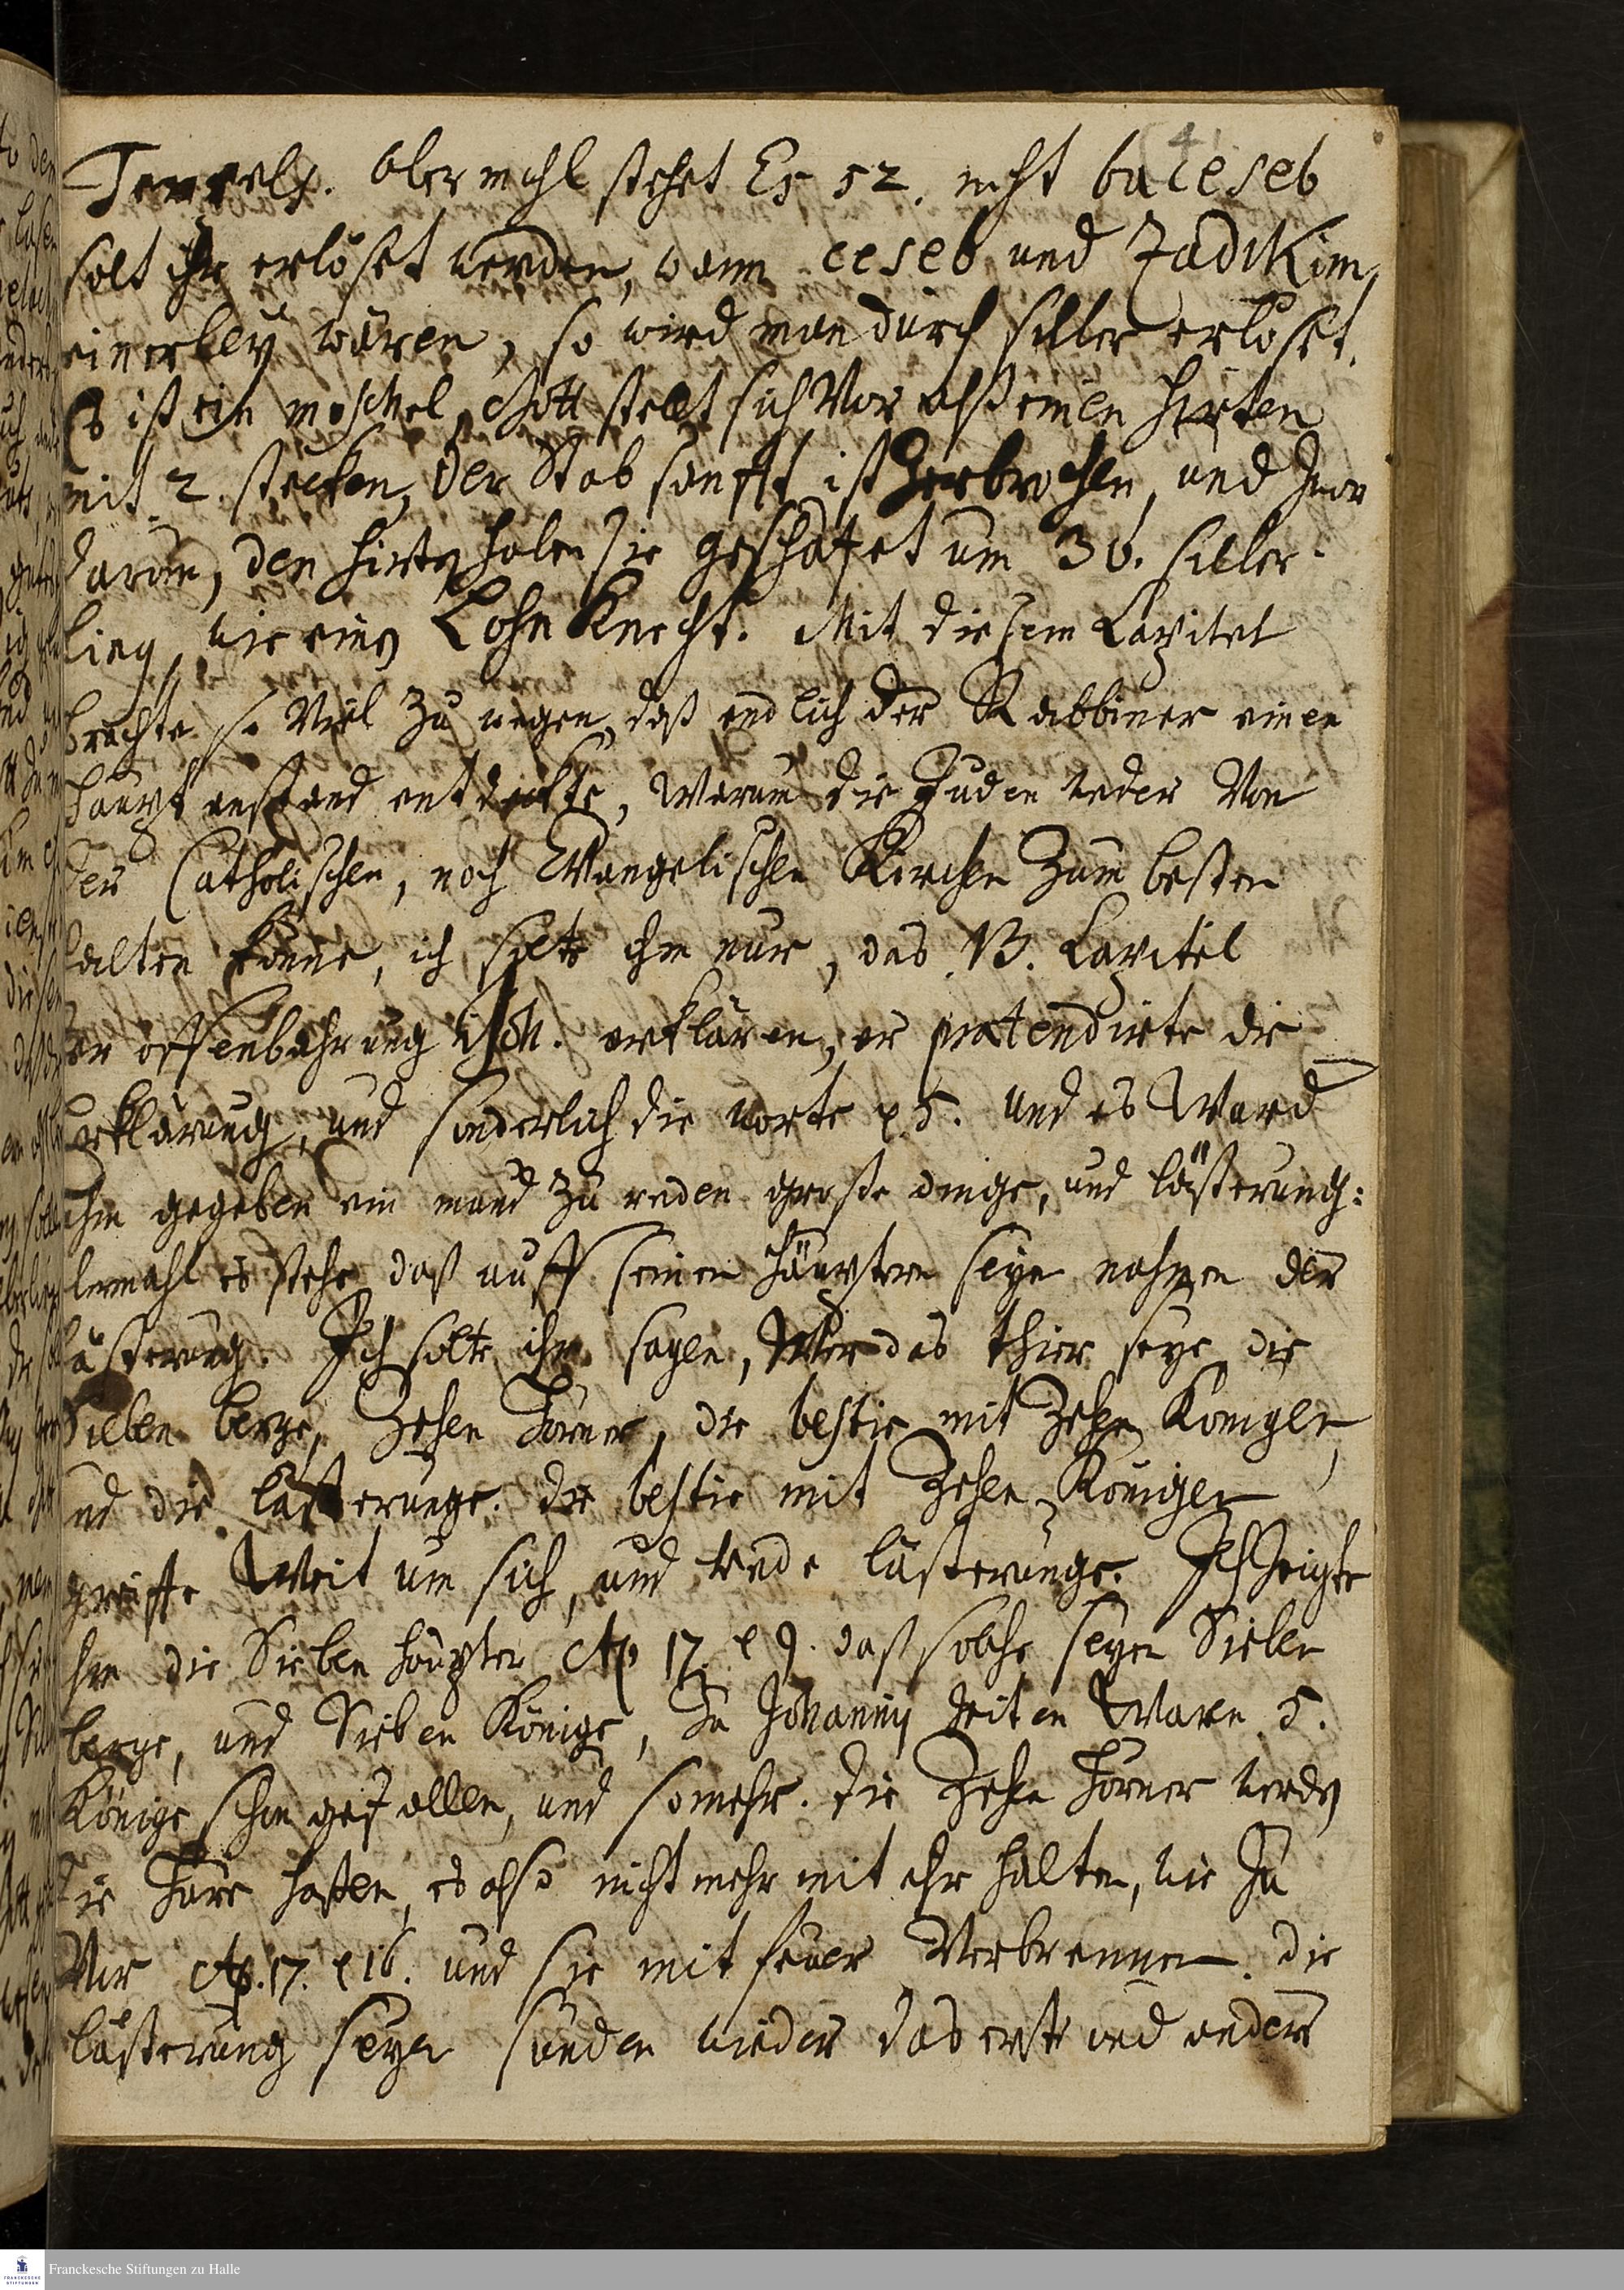 4
Tempels. Abermahl stehet Es 52. nicht baceseb
solt ihr erlöset werden, wann ceseb und Zadikim
einerley wären, so wird man durch silber erlöset.
Es ist ein moschel, Gott stellt sich Vor alß einen Hirten
mit 2. stecken, der Stab sanfft ist Zerbrochen, und zwar
darum, den hirten haben sie geschätzet um 30. silber-
ling, wie einen LohnKnecht. Mit diesem Capitel
brachte so Viel Zu wegen, daß endlich der Rabbiner einen
haupt anstand entdeckte, Warum die Juden weder Von
der Catholischen, noch Evangelischen Kirchen Zum besten
halten könne, ich solte ihm nur, das 13. Capitel
der offenbahrung Joh. erklären, er prætendirte die
Erklärung, und sonderlich die worte v 5. und es Ward
ihm gegeben ein mund zu reden große dinge, und lästerung:
Abermahl es stehe daß auff seinen häuptern seyn nahmen der
lästerung. Ich solte ihm sagen, Wer das thier seye, die
Sieben berge, Zehen hörner, die bestie mit Zehen Königen,
und die lästerunge. die bestie mit Zehen Königen
greiffe Weit um sich, und rede lästerunge. Ich Zeigte
ihm die Sieben häupter Ap 17. v 9. daß solche seyen Sieben
berge, und Sieben Könige, Zu Johannis Zeiten Waren 5.
Könige schon gefallen, und so mehr. die Zehen hörner werden
die Hure haßen, es also nicht mehr mit ihr halten, wie Zu
Vor Ap. 17. v 16. und sie mit feuer Verbrennen. die
lästerung seyen sünden wieder das erste und andere
Franckesche Stiftungen zu Halle